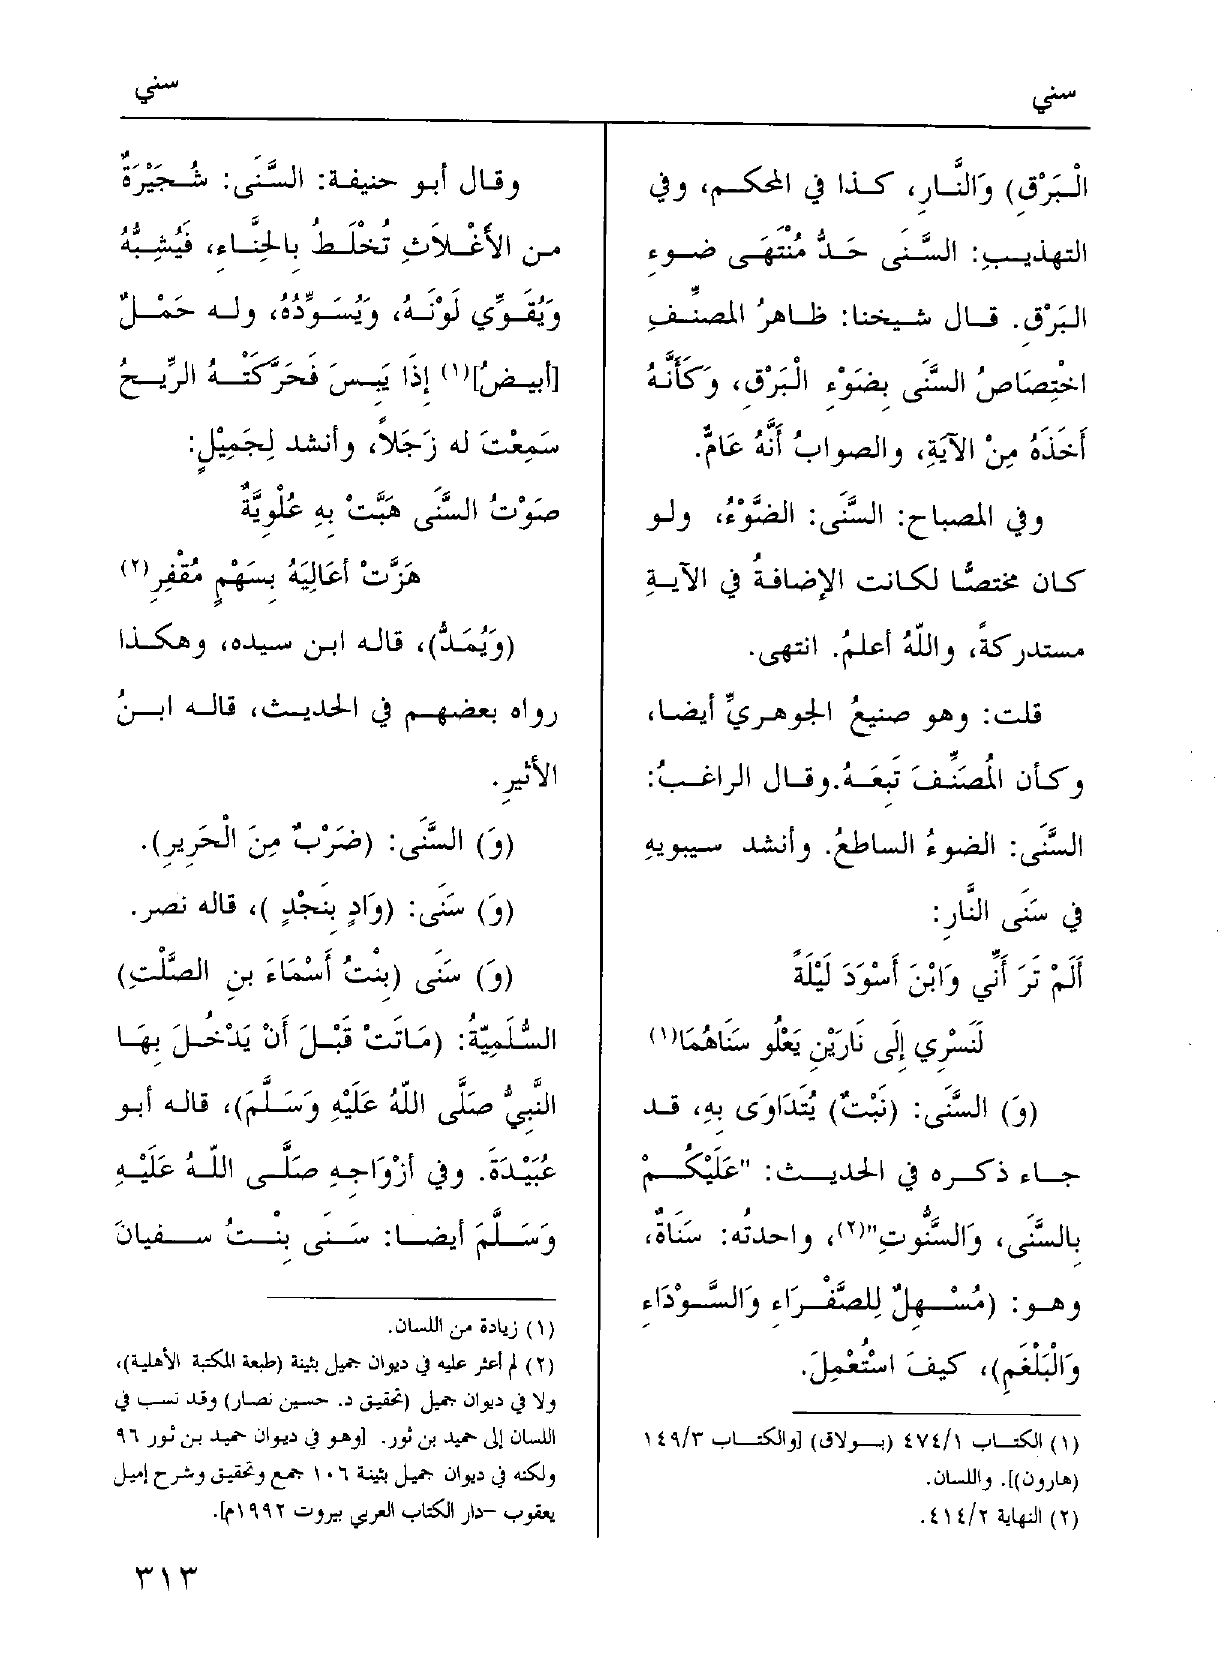 سني
سني
الْبَرْقِ) وَالنَّارِ، كذا في المحكم، وفي
التهذيب: السَّنَى حَدُّ مُنْتَهَى ضوءِ
البَرْقِ. قال شيخنا: ظاهرُ المصنِّفِ
اخْتِصَاصُ السَّنَى بِضَوْءِ الْبَرْقِ، وَكَأَنَّهُ
أَخَذَهُ مِنْ الآيَةِ، والصوابُ أَنَّهُ عَامٌّ.
وفي المصباح: السَّنَى: الضَّوْءُ، ولو
كان مختصًّا لكانت الإضافةُ في الآيةِ
مستدركةً، واللّهُ أعلمُ. انتهى.
قلت: وهو صنيعُ الجوهريِّ أيضا،
وكأن الْمُصَنِّفَ تَبِعَهُ. وقال الراغبُ:
السَّنَى: الضوءُ الساطعُ. وأنشد سيبويهِ
في سَنَى النَّارِ:
أَلَمْ تَرَ أَنِّي وَابْنَ أَسْوَدَ لَيْلَةً
لَنَسْرِي إِلَى نَارَيْنِ يَعْلُو سَنَاهُمَا(١)
(وَ) السَّنَى: (نَبْتٌ) يُتَدَاوَى بِهِ، قد
جاء ذكره في الحديث: "عَلَيْكُمْ
بِالسَّنَى، وَالسَّنُّوتِ"(٢)، واحدتُه: سَنَاةٌ،
وهو: (مُسْهِلٌ لِلصَّفْرَاءِ وَالسَّوْدَاءِ
وَالْبَلْغَمِ)، كيفَ اسْتُعْمِلَ.
(١) الكتاب ٤٧٤/١ (بولاق) [والكتاب ١٤٩/٣
(هارون)]. واللسان.
(٢) النهاية ٤١٤/٢.
وقال أبو حنيفة: السَّنَى: شُجَيْرَةٌ
من الأَغْلاثِ تُخْلَطُ بِالحِنَّاءِ، فَيُشِبُّهُ
وَيُقَوِّي لَوْنَهُ، وَيُسَوِّدُهُ، وله حَمْلٌ
[أبيضُ](١) إِذَا يَبِسَ فَحَرَّكَتْهُ الرِّيحُ
سَمِعْتَ له زَجَلاً، وأنشد لِجَمِيْلٍ:
صَوْتُ السَّنَى هَبَّتْ بِهِ عُلْوِيَّةٌ
هَزَّتْ أَعَالِيَهُ بِسَهْمٍ مُقْفِرِ(٢)
(وَيُمَدُّ)، قاله ابن سيده، وهكذا
رواه بعضهم في الحديث، قاله ابنُ
الأثيرِ.
(وَ) السَّنَى: (ضَرْبٌ مِنَ الْحَرِيرِ).
(وَ) سَنَى: (وَادٍ بِنَجْدٍ )، قاله نصر.
(وَ) سَنَى (بِنْتُ أَسْمَاءَ بنِ الصَّلْتِ)
السُّلَمِيَّةُ: (مَاتَتْ قَبْلَ أَنْ يَدْخُلَ بِهَا
النَّبِيُّ صَلَّى اللّهُ عَلَيْهِ وَسَلَّمَ)، قاله أبو
عُبَيْدَةَ. وفي أَزْوَاجِهِ صَلَّى اللّهُ عَلَيْهِ
وَسَلَّمَ أيضا: سَنَى بِنْتُ سفيانَ
(١) زيادة من اللسان.
(٢) لم أعثر عليه في ديوان جميل بثينة (طبعة المكتبة الأهلية)،
ولا في ديوان جميل (تحقيق د. حسين نصار) وقد نسب في
اللسان إلى حميد بن ثور. [وهو في ديوان حميد بن ثور ٩٦
ولكنه في ديوان جميل بثينة ١٠٦ جمع وتحقيق وشرح إميل
يعقوب –دار الكتاب العربي بيروت ١٩٩٢م].
٣١٣